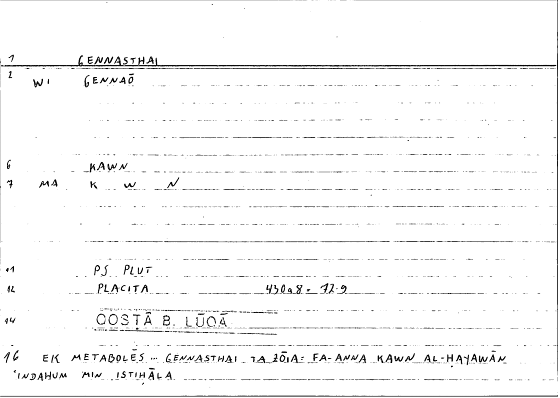 1 GENNASTHAI
2 WI GENNAŌ
6 KAWN
7 MA K W N
11 PS PLUT
12 PLACITA 430a8 - 12.9
14 COSTĀ B. LŪQĀ
16 EK METABOLĒS .. GENNASTHAI TA ZŌIA: FA-ANNA KAWN AL-ḤAYAWĀN
'INDAHUM MIN ISTIḤĀLA